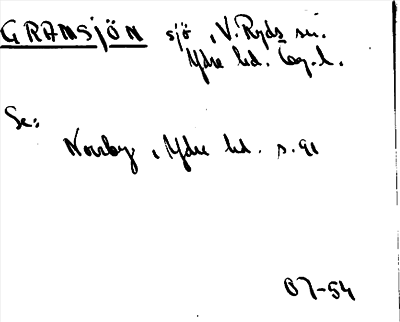 GRANSJÖN sjö, V. Ryds sn.
Ydre hd. Ög. l.
Se:
Norrby, Ydre hd. s. 91
07-54